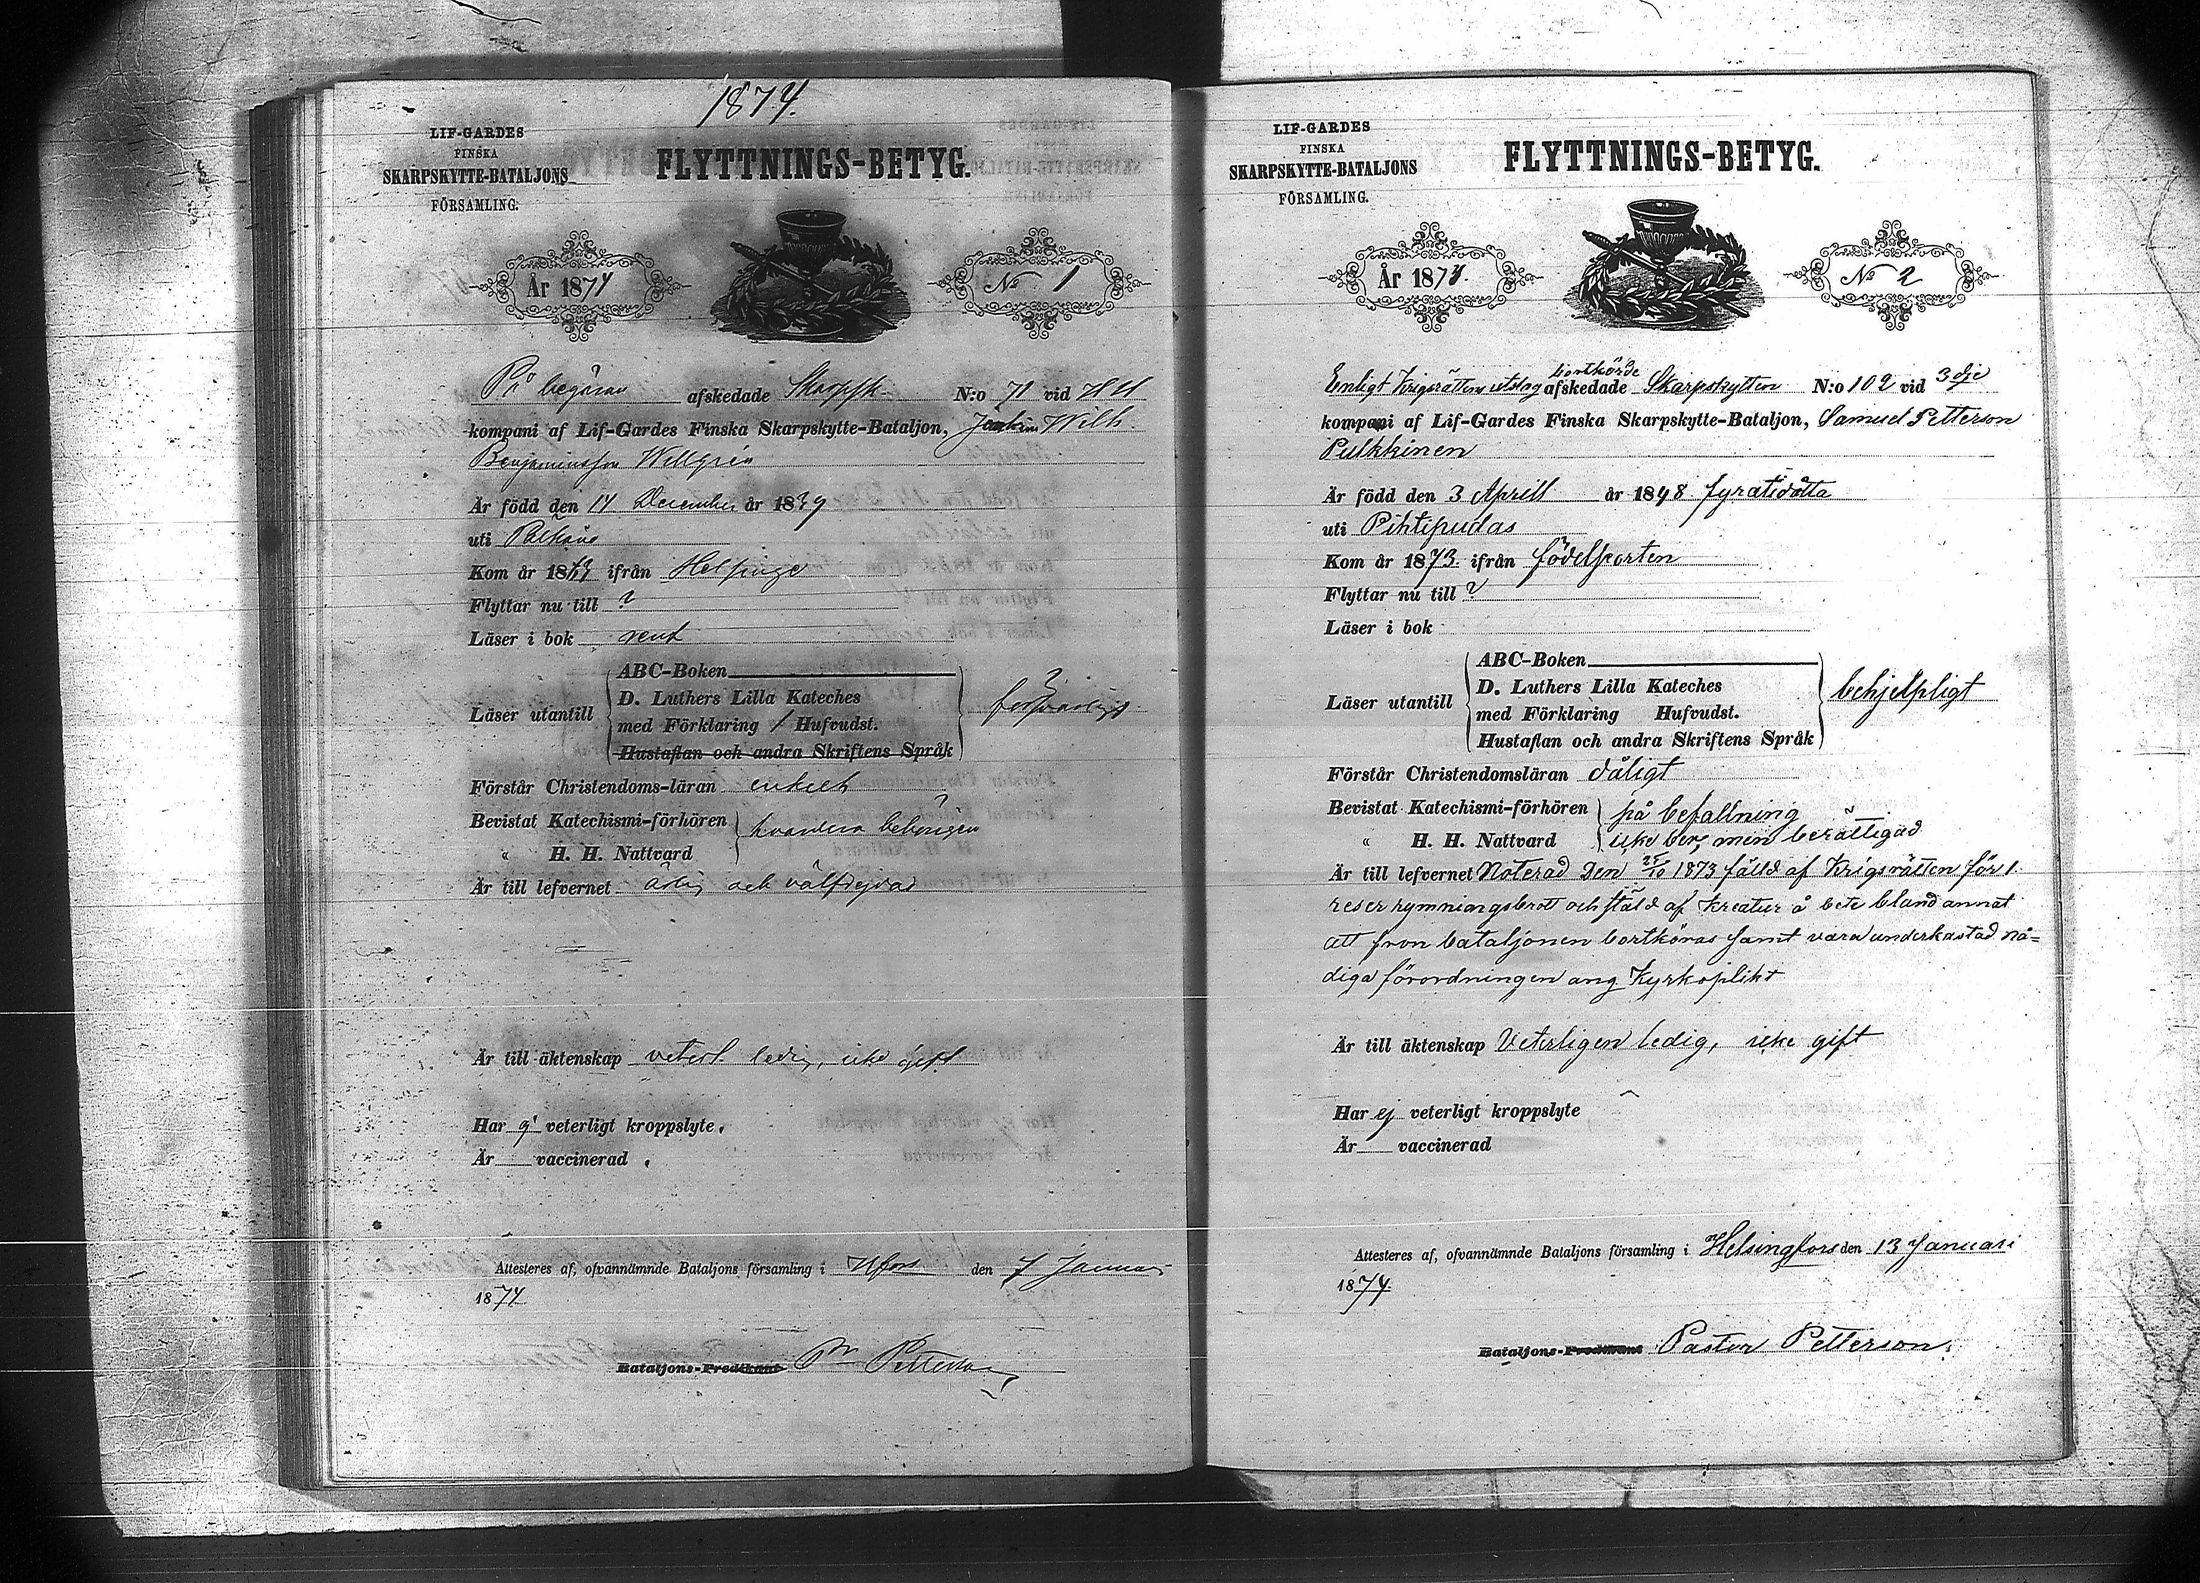 1874.
LIF-GARDES
FINSKA
SKARPSKYTTE-BATALJONS
FÖRSAMLING.
FLYTTNINGS-BETYG.
År 1874
No 1
På begäran afskedade Skarpsk. N:o 71 vid
kompani af Lif-Gardes Finska Skarpskytte-Bataljon, Wilh.
Benjaminsson Willgrén
Är född den 14 December år 1839
uti Pälkäne
Kom år 18 ifrån Helsinge
Flyttar nu till ?
Läser i bok rent
Läser utantill
ABC-Boken
D. Luthers Lilla Kateches
med Förklaring / Hufvudst.
Hustaflan och andra Skriftens Språk
försvarligt
Förstår Christendoms-läran enkelt
Bevistat Katechismi-förhören
" H. H. Nattvard
Är till lefvernet ärlig och välfrejdad
Är till äktenskap veterl. ledig, icke gift
Har ej veterligt kroppslyte.
Är vaccinerad.
Attesteres af, ofvannämnde Bataljons församling i Hfors den 7 Januari
1874
Bataljons-Predikant Petterson
LIF-GARDES
FINSKA
SKARPSKYTTE-BATALJONS
FÖRSAMLING.
FLYTTNINGS-BETYG.
År 1874.
No 2
bortkörde
Enligt Krigsrättens utslag afskedade Skarpskytten N:o 102 vid 3dje
kompani af Lif-Gardes Finska Skarpskytte-Bataljon, Samuel Petterson
Pulkkinen
Är född den 3 Aprill år 1848 fyratiåtta
uti Pihtipudas
Kom år 1873 ifrån födelseorten
Flyttar nu till ?
Läser i bok
Läser utantill
ABC-Boken
D. Luthers Lilla Kateches
med Förklaring Hufvudst.
Hustaflan och andra Skriftens Språk
behjelpligt
Förstår Christendomsläran dåligt
Bevistat Katechismi-förhören på befallning
" H. H. Nattvard icke här, men berättigad
Är till lefvernet Noterad Den 25/10 1873 fälld af Krigsrätten för 1.
reser rymningsbrott och stöld af Kreatur å bete bland annat
att från bataljonen bortköras samt vara underkastad nå=
diga förordningen ang Kyrkoplikt
Är till äktenskap Veterligen ledig, icke gift
Har ej veterligt kroppslyte
Är vaccinerad
Attesteres af, ofvannämnde Bataljons församling i Helsingfors den 13 Januari
1874.
Bataljons-Predikant Pastor Petterson.